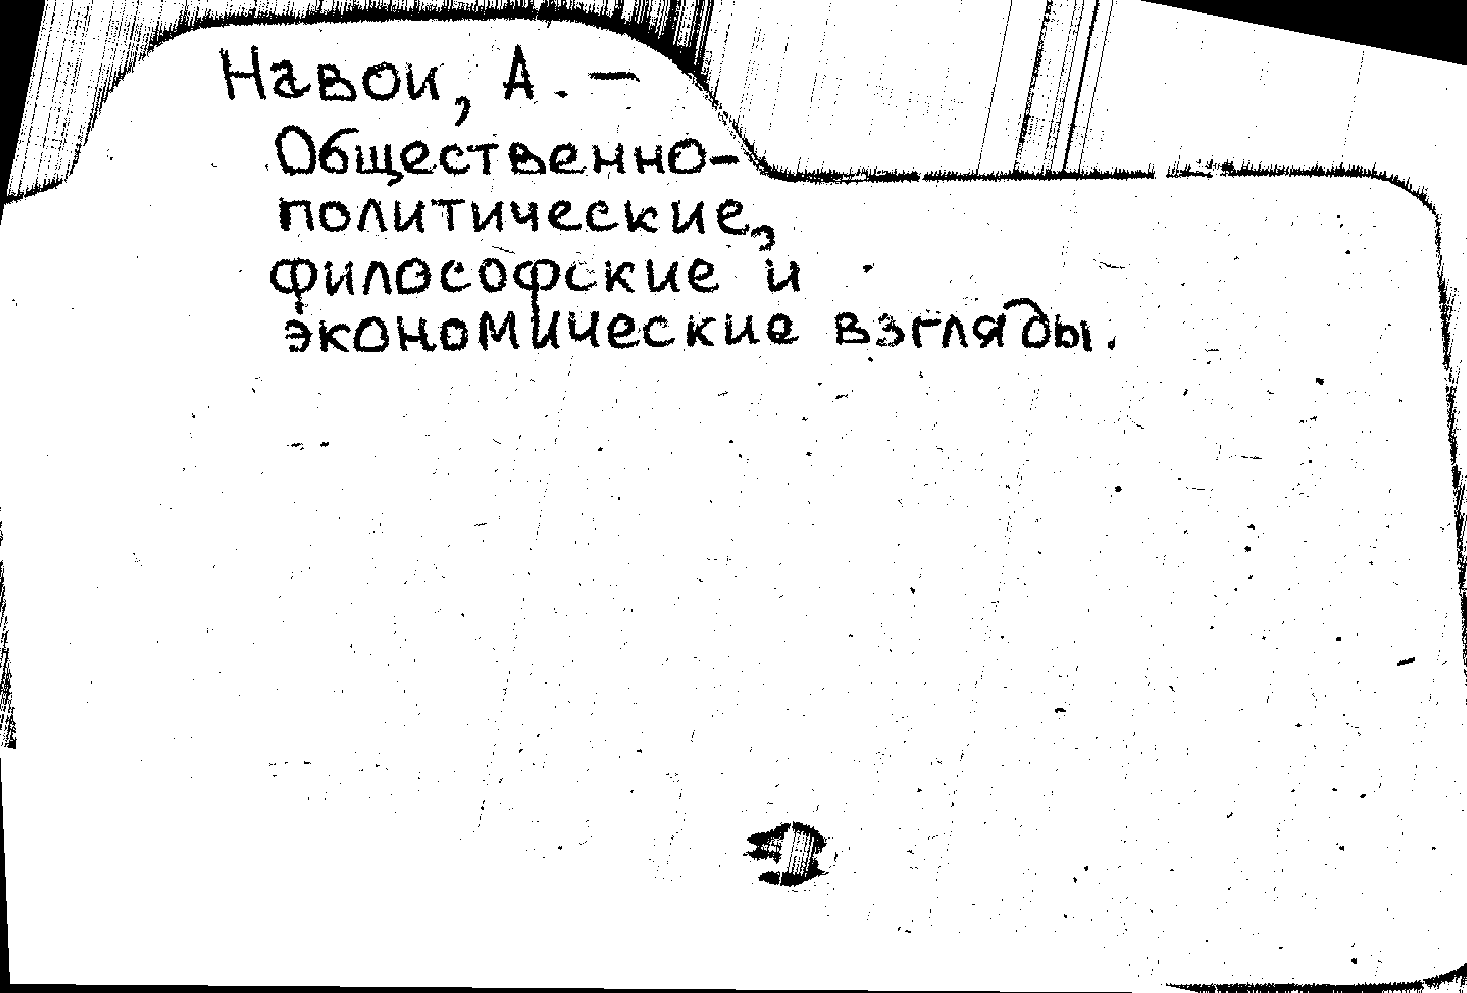 Навои, А. —
Общественно-
политические,
философские и
экономические взгляды.